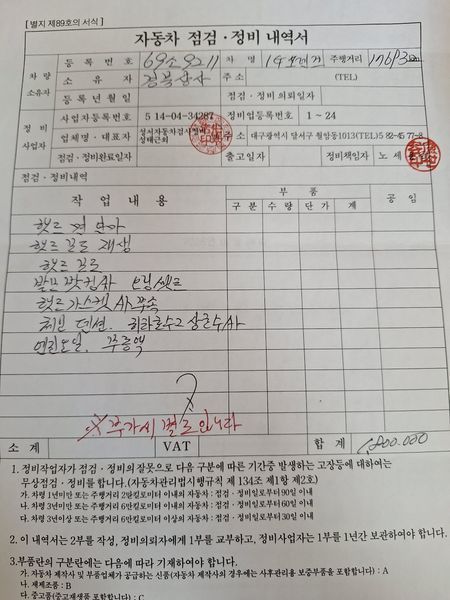 [ 별지 제89호의 서식 ]
자동차 점검 · 정비 내역서
차량 소유자
등록번호 69소9211 차명 주행거리 km
소유자 경북상사 주소 (TEL)
등록년월일 점검 · 정비 의뢰일자
정비 사업자
사업자등록번호 514-04-34287 정비업등록번호 1 ~ 24
업체명 · 대표자 성서자동차검사정비 성태근회 주소 대구광역시 달서구 월암동1013(TEL)582-4577~8
점검 · 정비완료일자 출고일자 정비책임자 노세
점검 · 정비내역
작업내용 부품 공임
구분 수량 단가 계
햇드 재생
햇드 볼트
햇드가스켓
엔진오일.
※ 부가세 별도입니다
소계 VAT 합계 1,800.000
1. 정비작업자가 점검 · 정비의 잘못으로 다음 구분에 따른 기간중 발생하는 고장등에 대하여는
무상점검 · 정비를 합니다.(자동차관리법시행규칙 제 134조 제1항 제2호)
가. 차령 1년미만 또는 주행거리 2만킬로미터 이내의 자동차 : 점검 · 정비일로부터 90일 이내
나. 차령 3년미만 또는 주행거리 6만킬로미터 이내의 자동차 : 점검 · 정비일로부터 60일 이내
다. 차령 3년이상 또는 주행거리 6만킬로미터 이상의 자동차 : 점검 · 정비일로부터 30일 이내
2. 이 내역서는 2부를 작성, 정비의뢰자에게 1부를 교부하고, 정비사업자는 1부를 1년간 보관하여야 합니다.
3.부품란의 구분란에는 다음에 따라 기재하여야 합니다.
가. 자동차 제작사 및 부품업체가 공급하는 신품(자동차 제작사의 경우에는 사후관리용 보증부품을 포함합니다) : A
나. 재제조품 : B
다. 중고품(중고재생품 포함합니다) : C